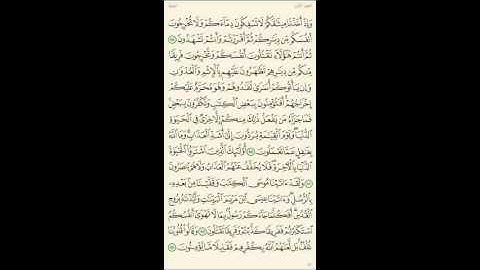 وَإِذْ أَخَذْنَا مِيثَٰقَكُمْ لَا تَسْفِكُونَ دِمَآءَكُمْ وَلَا تُخْرِجُونَ
أَنفُسَكُم مِّن دِيَٰرِكُمْ ثُمَّ أَقْرَرْتُمْ وَأَنتُمْ تَشْهَدُونَ
ثُمَّ أَنتُمْ هَٰٓؤُلَآءِ تَقْتُلُونَ أَنفُسَكُمْ وَتُخْرِجُونَ فَرِيقًا
مِّنكُم مِّن دِيَٰرِهِمْ تَظَٰهَرُونَ عَلَيْهِم بِٱلْإِثْمِ وَٱلْعُدْوَٰنِ
وَإِن يَأْتُوكُمْ أُسَٰرَىٰ تُفَٰدُوهُمْ وَهُوَ مُحَرَّمٌ عَلَيْكُمْ
إِخْرَاجُهُمْ أَفَتُؤْمِنُونَ بِبَعْضِ ٱلْكِتَٰبِ وَتَكْفُرُونَ بِبَعْضٍ
فَمَا جَزَآءُ مَن يَفْعَلُ ذَٰلِكَ مِنكُمْ إِلَّا خِزْىٌ فِى ٱلْحَيَوٰةِ
ٱلدُّنْيَا وَيَوْمَ ٱلْقِيَٰمَةِ يُرَدُّونَ إِلَىٰٓ أَشَدِّ ٱلْعَذَابِ وَمَا ٱللَّهُ
بِغَٰفِلٍ عَمَّا تَعْمَلُونَ أُو۟لَٰٓئِكَ ٱلَّذِينَ ٱشْتَرَوُا۟ ٱلْحَيَوٰةَ
ٱلدُّنْيَا بِٱلْءَاخِرَةِ فَلَا يُخَفَّفُ عَنْهُمُ ٱلْعَذَابُ وَلَا هُمْ يُنصَرُونَ
وَلَقَدْ ءَاتَيْنَا مُوسَى ٱلْكِتَٰبَ وَقَفَّيْنَا مِنۢ بَعْدِهِۦ
بِٱلرُّسُلِ وَءَاتَيْنَا عِيسَى ٱبْنَ مَرْيَمَ ٱلْبَيِّنَٰتِ وَأَيَّدْنَٰهُ بِرُوحِ
ٱلْقُدُسِ أَفَكُلَّمَا جَآءَكُمْ رَسُولٌۢ بِمَا لَا تَهْوَىٰٓ أَنفُسُكُمُ
ٱسْتَكْبَرْتُمْ فَفَرِيقًا كَذَّبْتُمْ وَفَرِيقًا تَقْتُلُونَ وَقَالُوا۟ قُلُوبُنَا
غُلْفٌۢ بَل لَّعَنَهُمُ ٱللَّهُ بِكُفْرِهِمْ فَقَلِيلًا مَّا يُؤْمِنُونَ